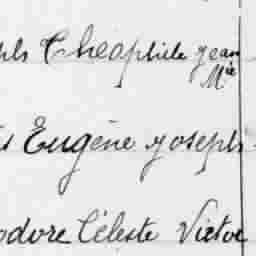 phs Théophile jean
Mie
is Eugène joseph
odore Céleste Victor